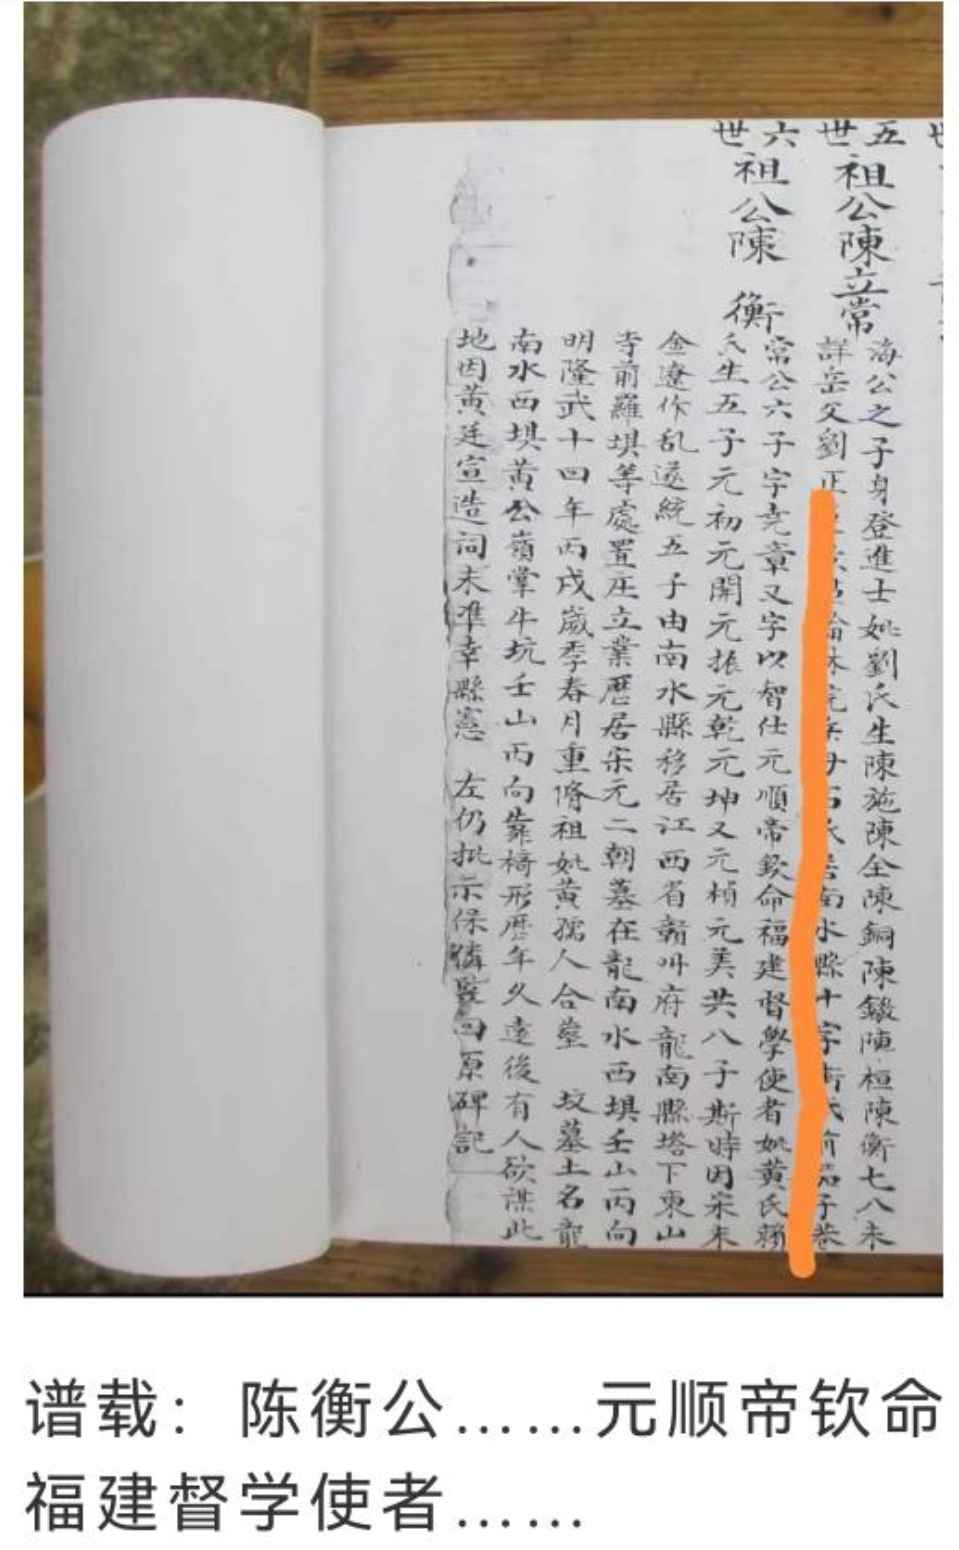 五世
祖公陳立常
海公之子身登進士妣劉氏生陳施陳全陳銅陳鏾陳桓陳衡七八未
詳岳父劉正
林院
母石氏居南水縣十字街
前
子巷
六世
祖公陳 衡
常公六子字堯章又字以智仕元順帝欽命福建督學使者妣黃氏賴
氏生五子元初元開元振元乾元坤又元楨元美共八子斯時因宋末
金遼作乱遂統五子由南水縣移居江西省贛州府龍南縣塔下東山
寺前羅垻等處置庄立業歷居宋元二朝墓在龍南水西垻壬山丙向
明隆武十四年丙戌歲季春月重脩祖妣黃孺人合塋 坟墓土名龍
南水西垻黃公嶺掌牛坑壬山丙向靠椅形歷年久遠後有人欲謀此
地因黃廷宣造祠未準幸縣憲 左仍批示保
原碑記
谱载：陈衡公……元顺帝钦命
福建督学使者……